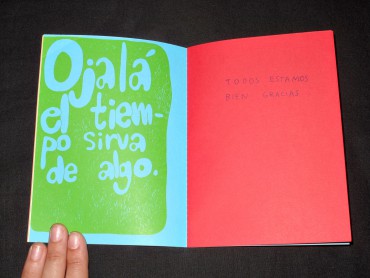 Ojalá
el tiem-
po sirva
de algo.
TODOS ESTAMOS
BIEN GRACIAS